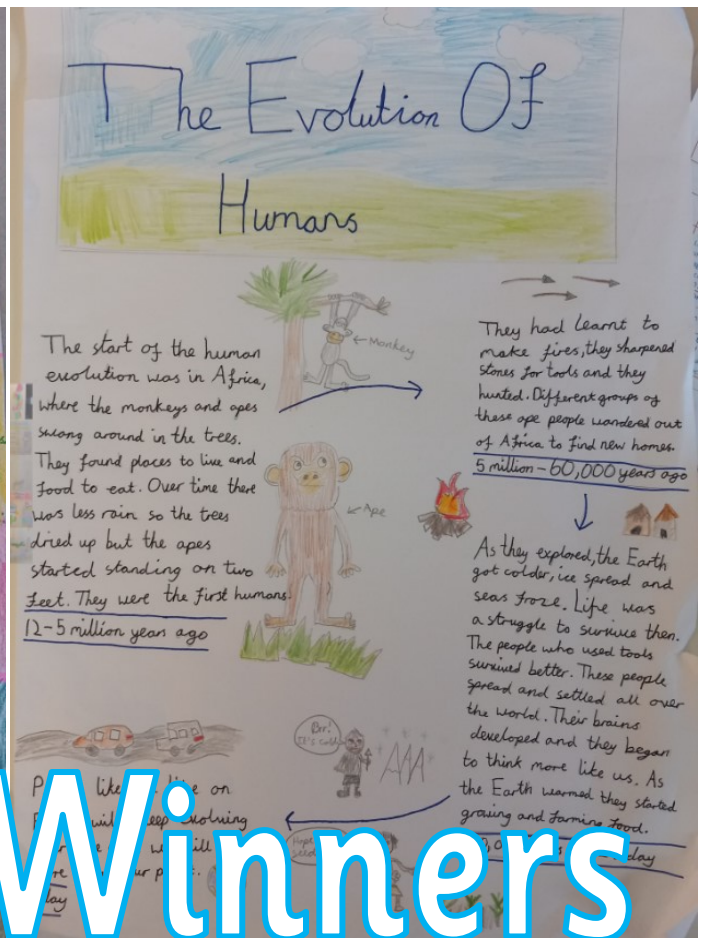 The Evolution Of
Humans
The start of the human
evolution was in Africa,
where the monkeys and apes
swang around in the trees.
They found places to live and
food to eat. Over time there
was less rain so the trees
dried up but the apes
started standing on two
feet. They were the first humans.
12-5 million years ago
Monkey
Ape
They had learnt to
make fires, they sharpened
stones for tools and they
hunted. Different groups of
these ape people wandered out
of Africa to find new homes.
5 million - 60,000 years ago
As they explored, the Earth
got colder, ice spread and
seas froze. Life was
a struggle to survive then.
The people who used tools
survived better. These people
spread and settled all over
the world. Their brains
developed and they began
to think more like us. As
the Earth warmed they started
growing and farming food.
Brr!
It's cold
like on
evolving
Winners